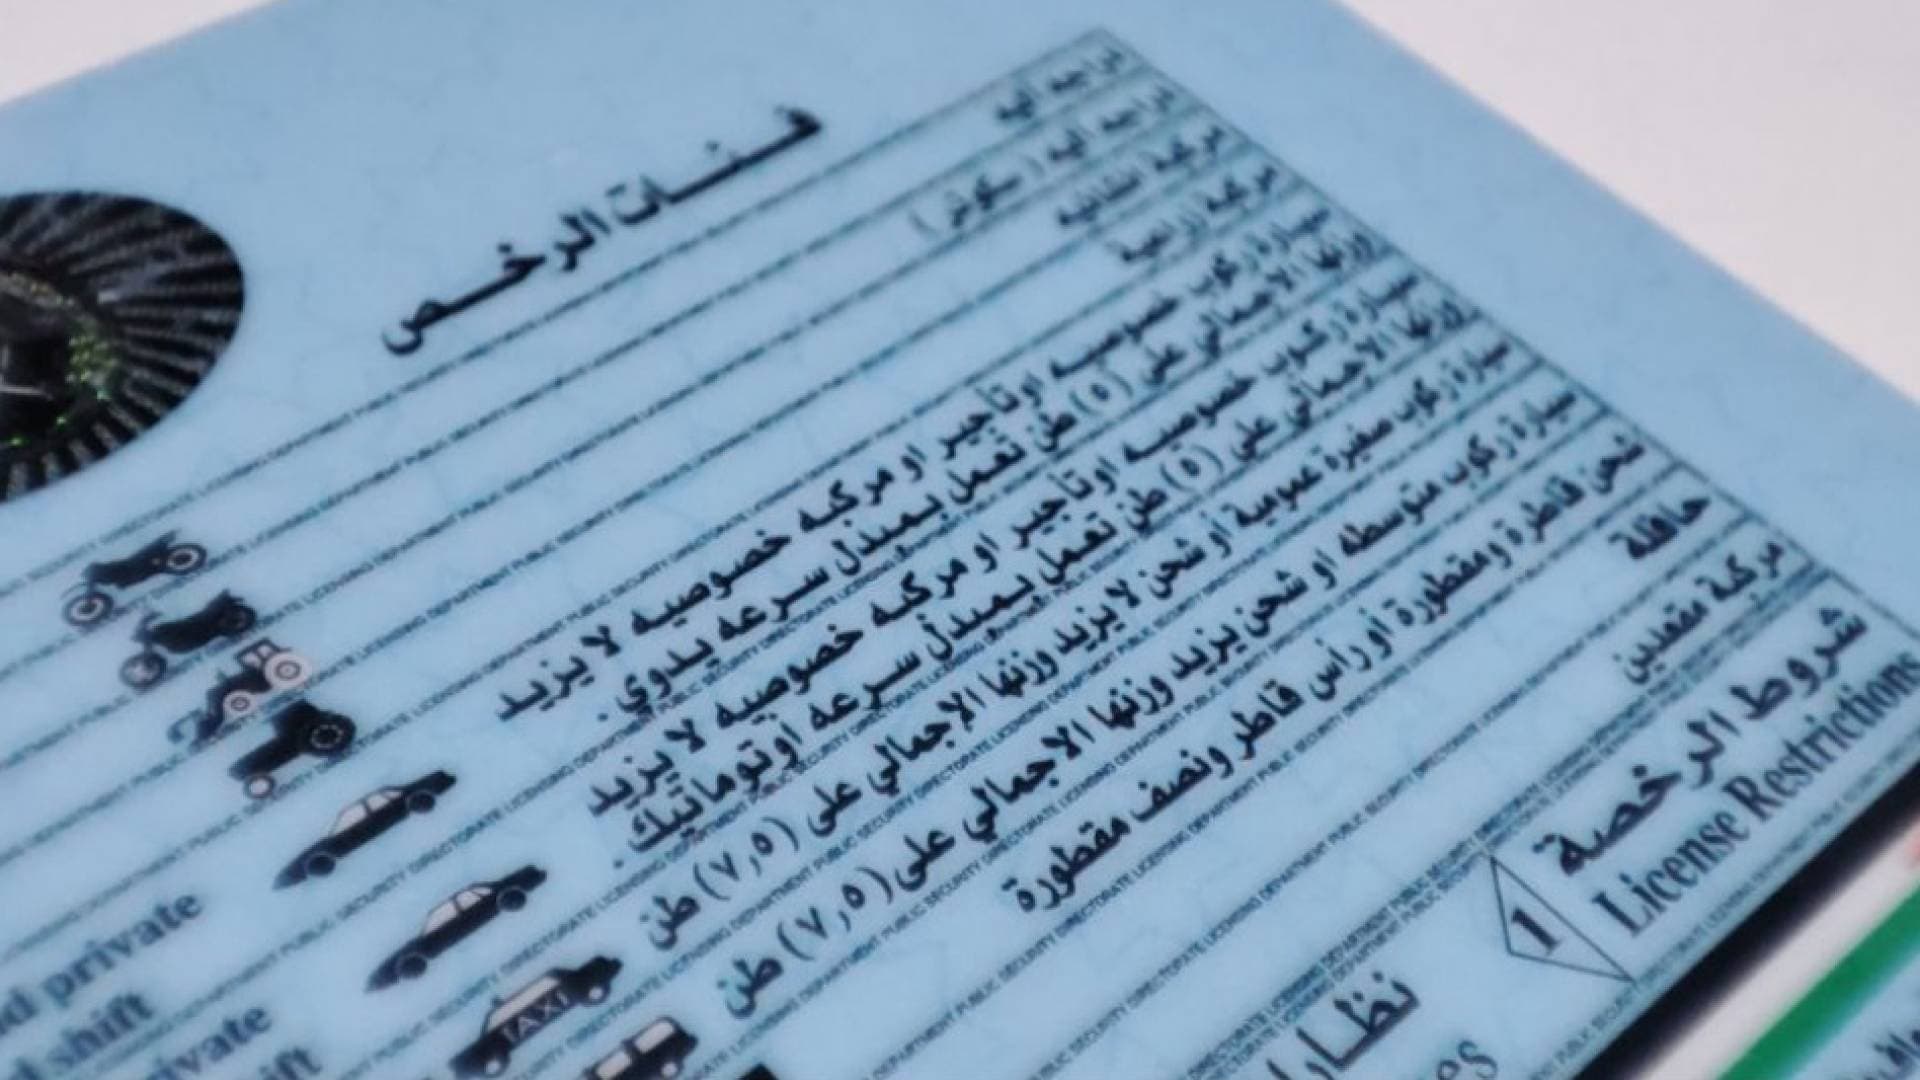 فئات الرخص
دراجه آليه
دراجه آليه (سكوتر)
مركبة انشائية
مركبة زراعية
سيارة ركوب خصوصيه او تأجير او مركبه خصوصيه لا يزيد
وزنها الاجمالي على (٥) طن تعمل بمبدل سرعه يدوي.
سيارة ركوب خصوصيه او تأجير او مركبه خصوصيه لا يزيد
وزنها الاجمالي على (٥) طن تعمل بمبدل سرعه اوتوماتيك.
سيارة ركوب صغيرة عمومية أو شحن لا يزيد وزنها الاجمالي على (٧,٥) طن
سيارة ركوب متوسطه او شحن يزيد وزنها الاجمالي على (٧,٥) طن
شحن قاطرة ومقطورة أو رأس قاطر ونصف مقطورة
حافلة
مركبة مقعدين
شروط الرخصة
License Restrictions
1
private
shift
TAXI